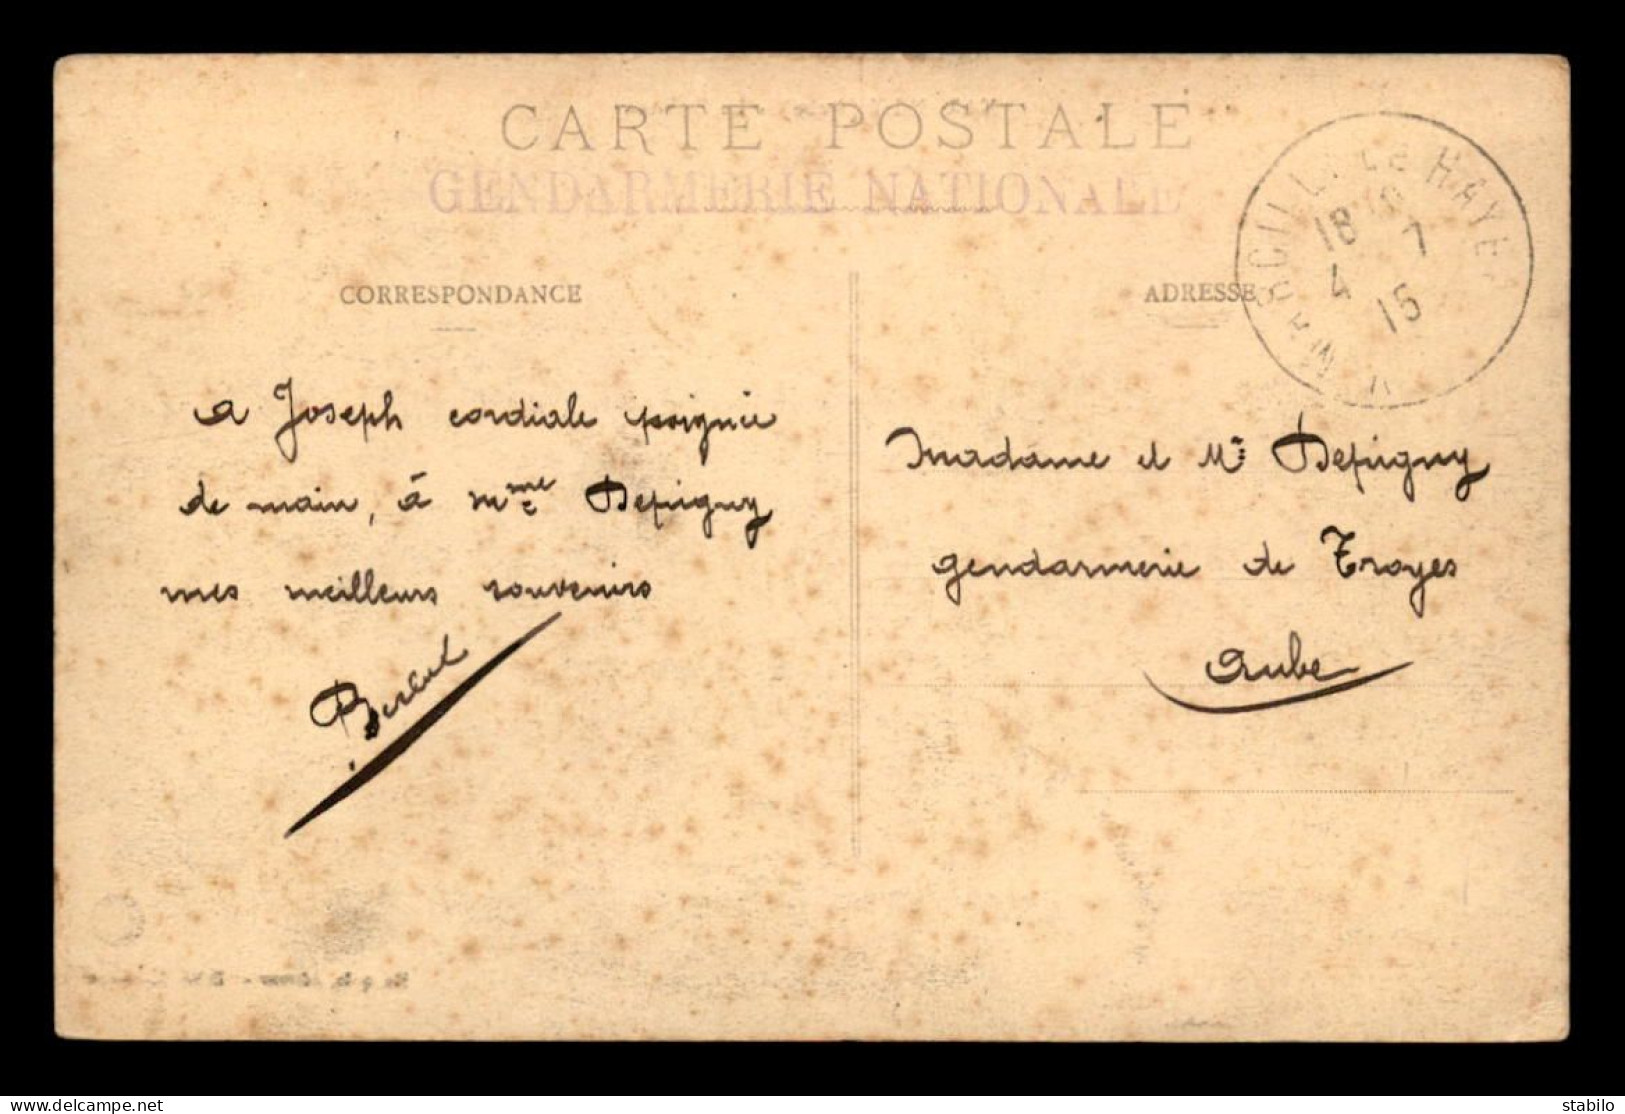 CARTE POSTALE
GENDARMERIE NATIONALE
CORRESPONDANCE
ADRESSE
LE HAYE
18 7
4 15
a Joseph cordiale poignée
de main, à Mme Depigny
mes meilleurs souvenirs
Madame et Mr Depigny
gendarmerie de Troyes
Aube
delcampe.net
stabilo